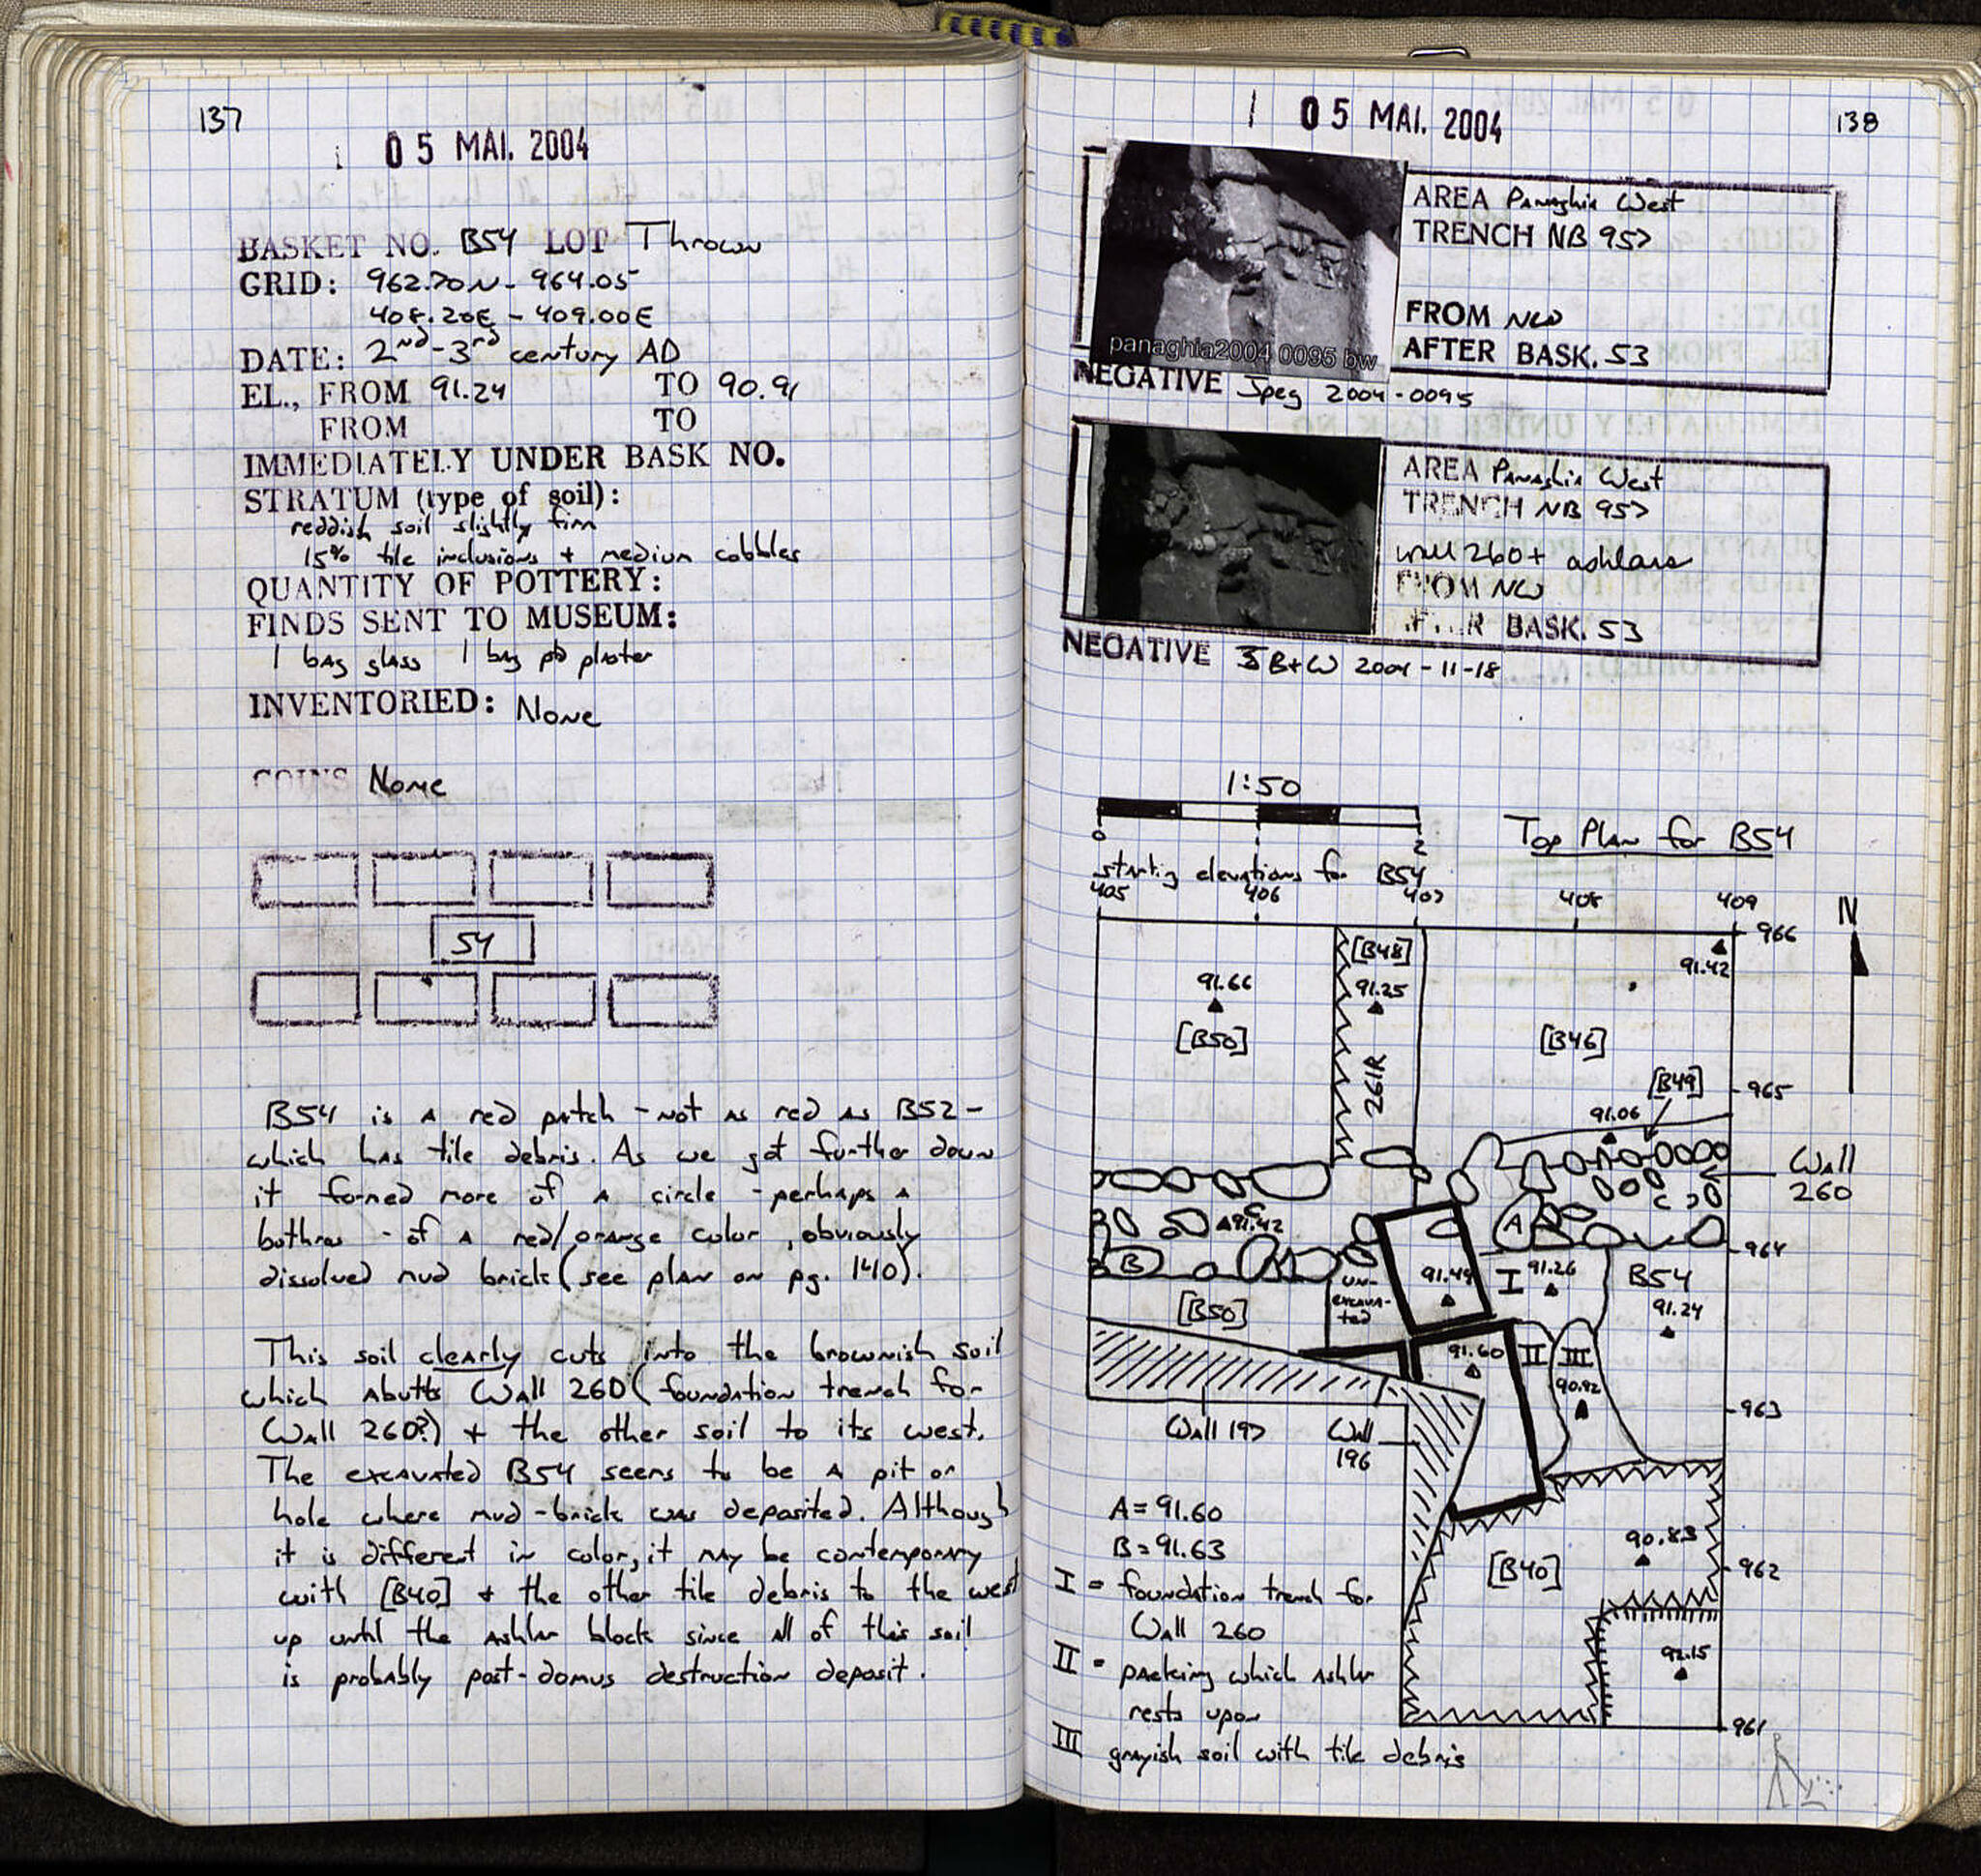 137
05 MAI. 2004
BASKET NO. B54 LOT Thrown
GRID: 962.70N - 964.05
408.20E - 409.00E
DATE: 2nd-3rd century AD
EL., FROM 91.24 TO 90.91
FROM TO
IMMEDIATELY UNDER BASK NO.
STRATUM (type of soil):
reddish soil slightly firm
15% tile inclusions + medium cobbles
QUANTITY OF POTTERY:
FINDS SENT TO MUSEUM:
1 bag glass 1 bag ptd plaster
INVENTORIED: None
COINS None
54
B54 is a red patch - not as red as B52 -
which has tile debris. As we got further down
it formed more of a circle - perhaps a
bothros - of a red/orange color, obviously
dissolved mud brick (see plan on pg. 140).
This soil clearly cuts into the brownish soil
which abutts Wall 260 (foundation trench for
Wall 260?) + the other soil to its west.
The excavated B54 seems to be a pit or
hole where mud-brick was deposited. Although
it is different in color, it may be contemporary
with [B40] + the other tile debris to the west
up until the ashlar block since all of this soil
is probably post-domus destruction deposit.
05 MAI. 2004
138
AREA Panaghia West
TRENCH NB 957
FROM NW
AFTER BASK. 53
panaghia2004 0095 bw
NEGATIVE Jpeg 2004-0095
AREA Panaghia West
TRENCH NB 957
wall 260 + ashlars
FROM NW
AFTER BASK. 53
NEGATIVE B+W 2004-11-18
1:50
0 2
Top Plan for B54
starting elevations for B54
405 406 407 408 409
N
966
[B48]
91.42
91.66
91.25
[B50]
[B46]
261R
[B49]
965
91.06
Wall
260
91.42
A
964
B
91.49
I
91.26
B54
un-
excava-
ted
[B50]
91.24
91.60
II
III
90.92
963
Wall 197
Wall
196
A = 91.60
B = 91.63
90.83
[B40]
962
I = foundation trench for
Wall 260
92.15
II = packing which ashlar
rests upon
961
III grayish soil with tile debris